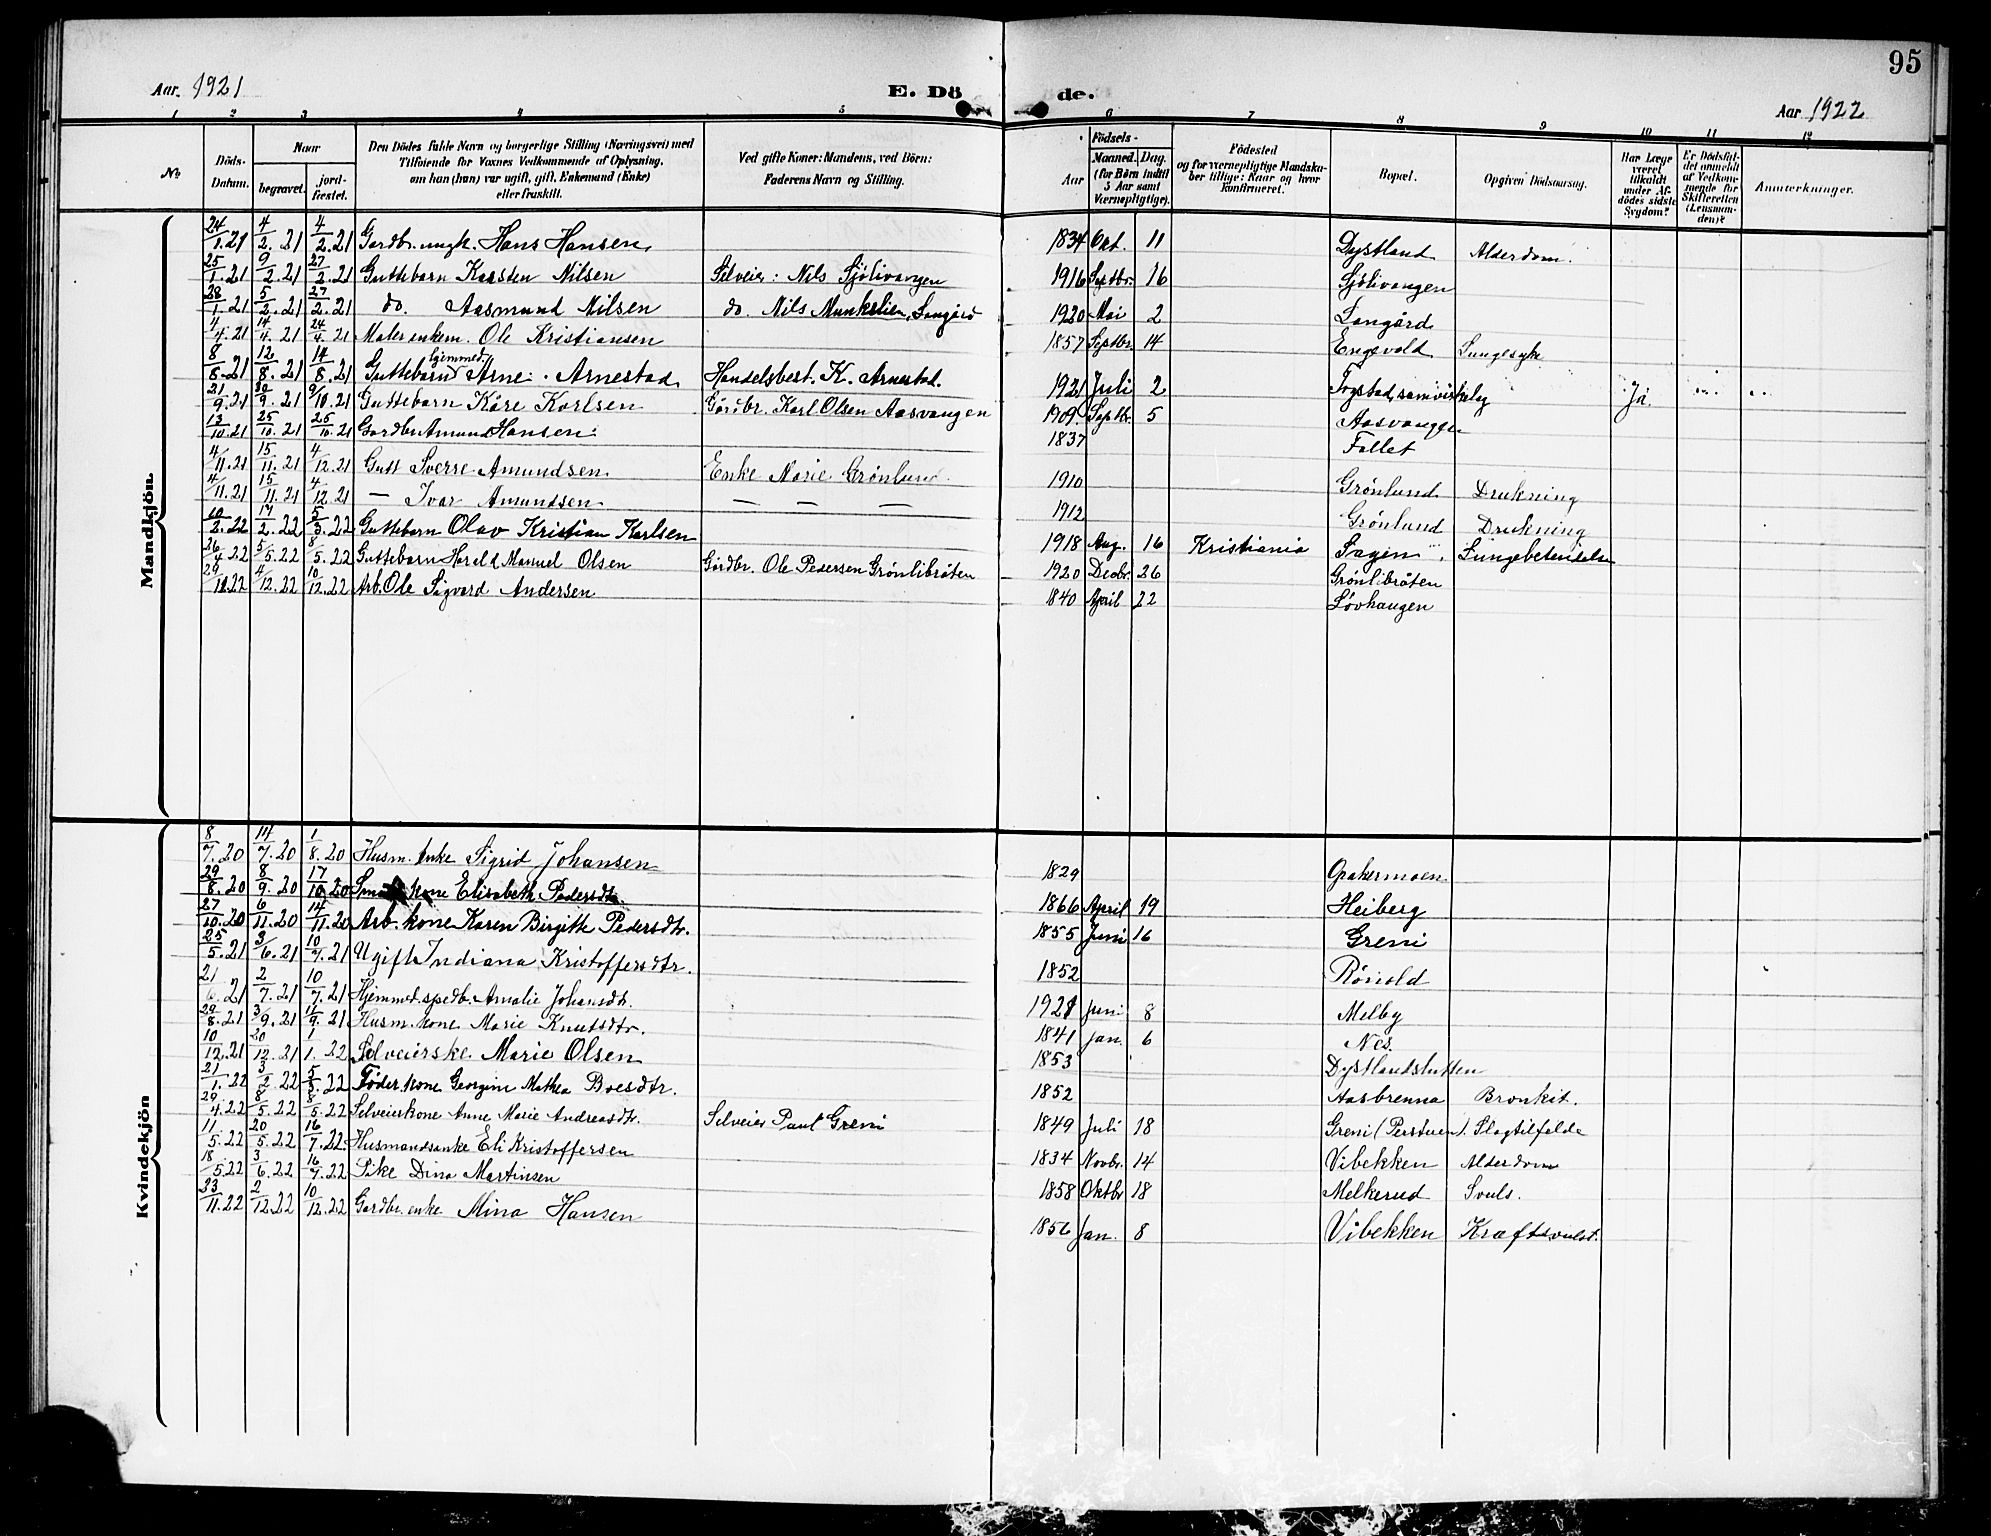 95
Aar. 1921 E. Dö de. Aar 1922
1 2 3 4 5 6 7 8 9 10 11 12
No
Döds-Datum.
Naar
begravet.
jord-fæstet.
Den Dödes fulde Navn og borgerlige Stilling (Næringsvei) med
Tilföiende for Voxnes Vedkommende af Oplysning,
om han (hun) var ugift, gift, Enkemand (Enke)
eller fraskilt.
Ved gifte Koner: Mandens, ved Börn:
Faderens Navn og Stilling.
Födsels-
Aar
Maaned. Dag.
(for Börn indtil
5 Aar samt
Værnepligtige).
Födested
og for værnepligtige Mandska-
ber tillige: Naar og hvor
konfirmeret.
Bopæl.
Opgiven Dödsaarsag.
Har Læge
været
tilkaldt
under Af-
dödes sidste
Sygdom?
Er Dödsfal-
det anmeldt
af Vedkom-
mende for
Skifteretten
(Lensman-
den)?
Anmærkninger.
Mandkjön.
24/1.21 4/2.21 4/2.21 Gardbr. ungk. Hans Hansen 1834 Okt. 11 Dystland Alderdom.
25/1.21 9/2.21 27/2.21 Guttebarn Karsten Nilsen Selveier: Nils Sjölivangen 1916 Septbr. 16 Sjölivangen
28/1.21 5/2.21 27/2.21 do. Aasmund Nilsen do. Nils Munkelien, Langård 1920 Mai 2 Langård
1/4.21 14/4.21 24/4.21 Maler enkem. Ole Kristiansen 1857 Septbr. 14 Engevold Lungesyk
8/8.21 12/8.21 14/8.21 Guttebarn hjemmed. Arne Arnestad Handelsbest. K. Arnestad. 1921 Juli 2 Fogstad samvirkelag Ja
21/9.21 30/9.21 9/10.21 Guttebarn Kåre Karlsen Gårdbr. Karl Olsen Aasvangen 1909 Septbr. 5 Aasvangen
13/10.21 25/10.21 25/10.21 Gardbr. Amund Hansen 1837 Fallet
4/11.21 15/11.21 4/12.21 Gutt Sverre Amundsen Enke Marie Grönlund 1910 Grönlund Drukning
4/11.21 15/11.21 4/12.21 — Ivar Amundsen — — — 1912 Grönlund Drukning
10/2.22 17/2.22 5/3.22 Guttebarn Olav Kristian Karlsen 1918 Aug. 16 Kristiania Sagen Lungebetendelse
26/4.22 5/5.22 8/5.22 Guttebarn Harald Manuel Olsen Gårdbr. Ole Pedersen Grönlibråten 1920 Decbr. 26 Grönlibråten
29/11.22 4/12.22 10/12.22 Arb. Ole Sigvard Andersen 1840 April 22 Lövhaugen
Kvindekjön
8/7.20 14/7.20 1/8.20 Husm. enke Sigrid Johansen 1829 Opakermoen
29/8.20 8/9.20 17/10.20 kone Elisabeth Pedersdtr. 1866 April 19 Heiberg
27/10.20 6/11.20 14/11.20 Arb. kone Karen Birgitte Pedersdtr. 1855 Juni 16 Greni
25/5.21 3/6.21 10/7.21 Ugift Indiana Kristoffersdtr. 1852 Rönold
21/6.21 2/7.21 10/7.21 Hjemmed. spedb. Amalie Johansdtr. 1921 Juni 8 Melby
29/8.21 3/9.21 11/9.21 Husm. kone Marie Knutsdtr. 1841 Jan. 6 Nes.
10/12.21 20/12.21 1/1.22 Selveierske Marie Olsen 1853 Dystlandshutten
21/1.22 3/2.22 5/3.22 Föder. kone Georgine Mathea Boesdtr. 1852 Aasbrenna Bronkit.
29/4.22 8/5.22 8/5.22 Selveierkone Anne Marie Andreasdtr. Selveier Paul Greni 1849 Juli 18 Greni (Perstuen). Slagtilfelde
11/5.22 20/5.22 16/7.22 Husmandsenke Eli Kristoffersen 1834 Novbr. 14 Vibekken Alderdom
18/5.22 3/6.22 16/7.22 Pike Dina Martinsen 1858 Oktbr 18 Melkerud Svuls.
23/11.22 2/12.22 10/12.22 Gardbr. enke Mina Hansen 1856 Jan. 8 Vibekken Kræftsvulst.